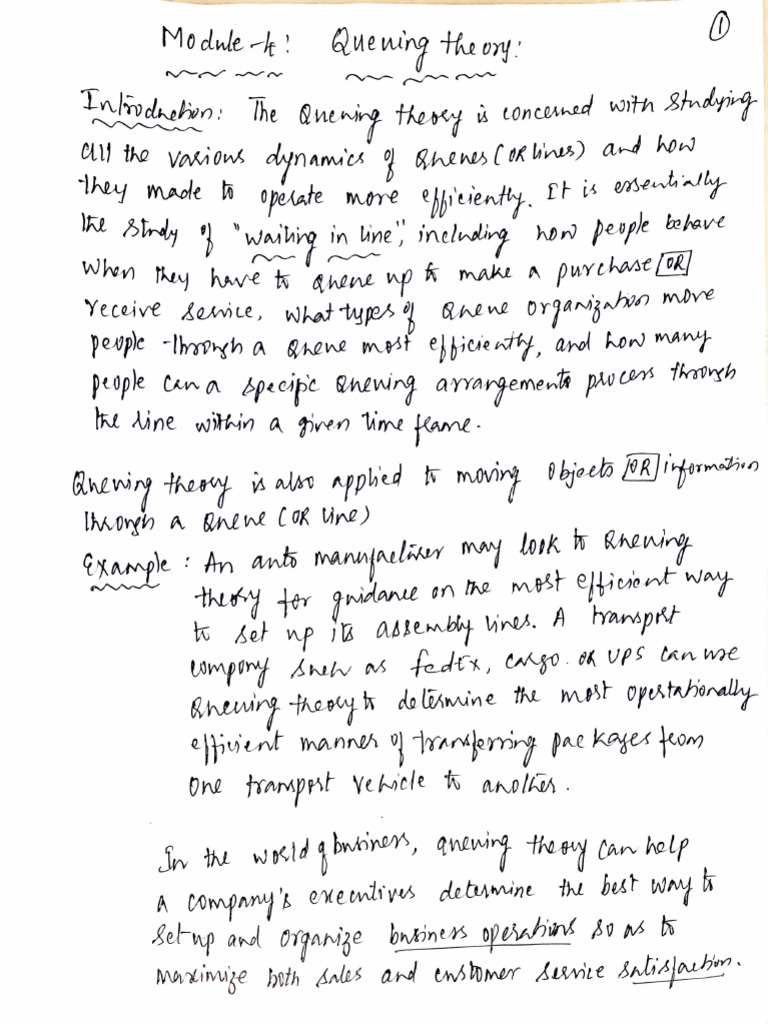 ①
Module-4: Queuing theory:
Introduction: The Queuing theory is concerned with studying
all the various dynamics of Queues (OR lines) and how
they made to operate more efficiently. It is essentially
the study of "waiting in line", including how people behave
when they have to queue up to make a purchase OR
receive service, what types of Queue organization move
people through a Queue most efficiently, and how many
people can a specific Queuing arrangements process through
the line within a given time frame.
Queuing theory is also applied to moving objects OR information
through a Queue (OR line)
Example: An auto manufacturer may look to Queuing
theory for guidance on the most efficient way
to set up its assembly lines. A transport
company such as fedEx, cargo. OR UPS can use
Queuing theory to determine the most operationally
efficient manner of transferring packages from
one transport vehicle to another.
In the world of business, queuing theory can help
a company's executives determine the best way to
set up and organize business operations so as to
maximize both sales and customer service satisfaction.